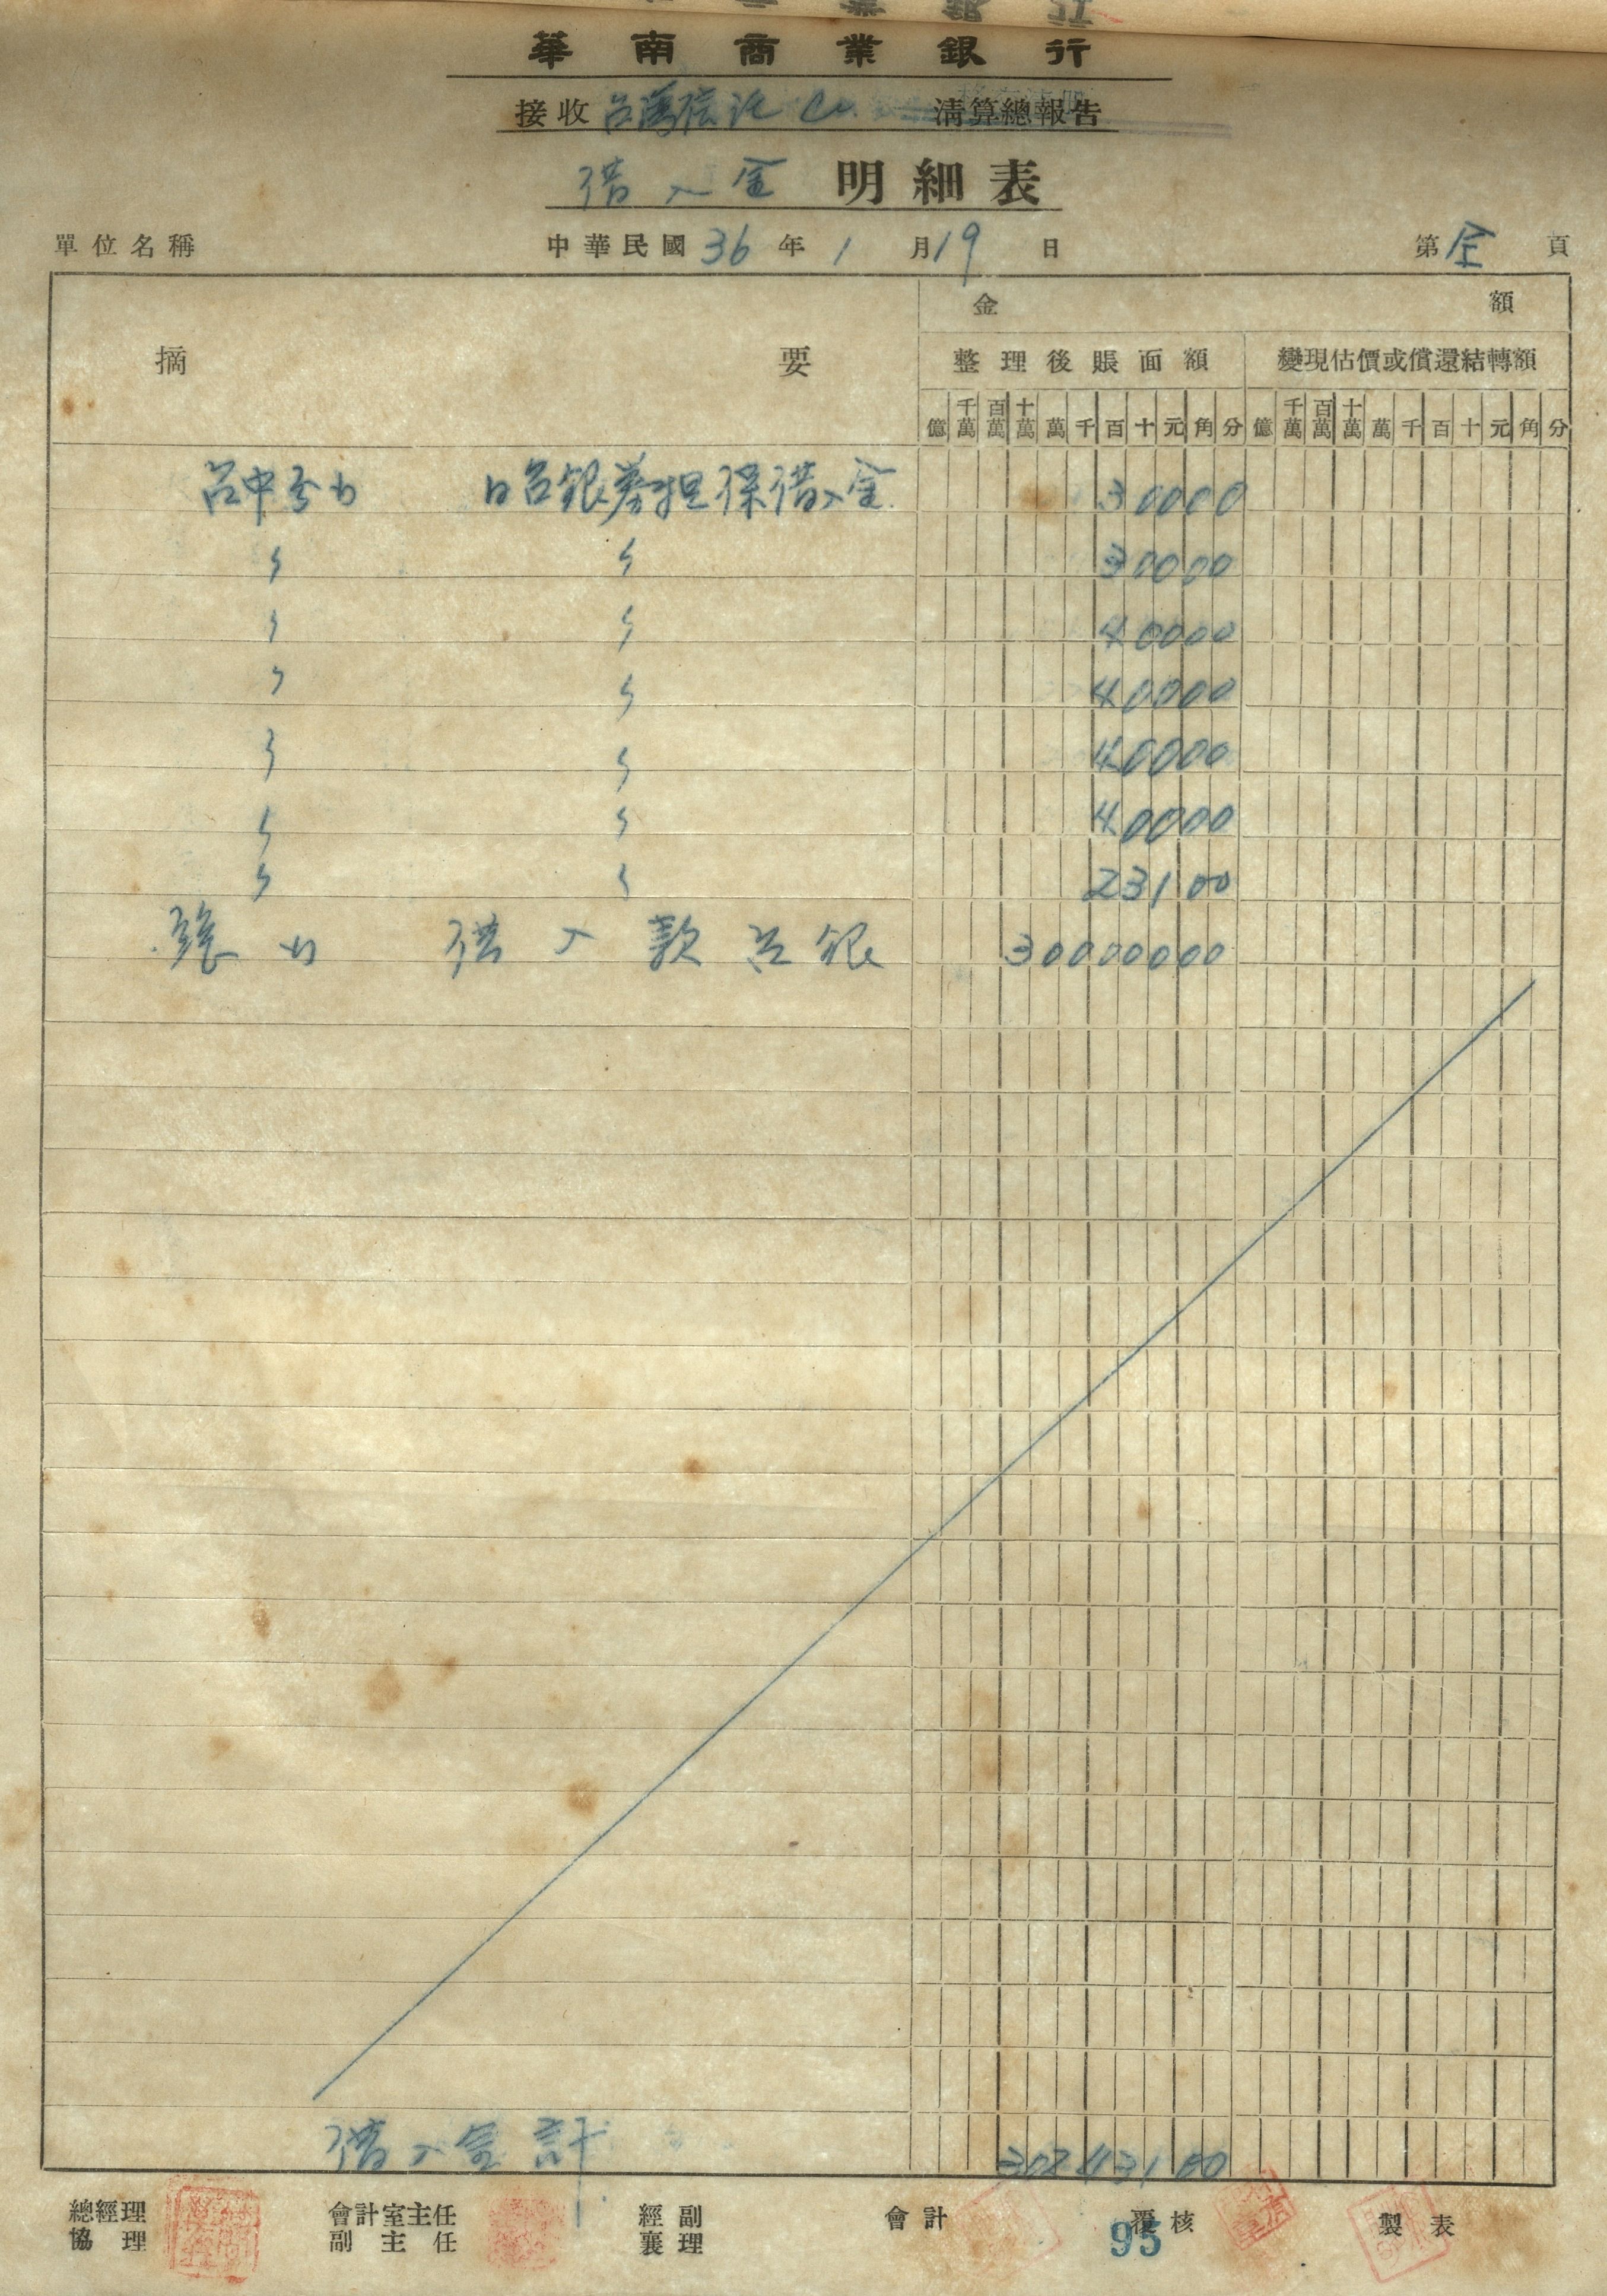 華南商業銀行
接收 台灣信託 Co. 清算總報告
借入金 明細表
單位名稱 中華民國 36 年 1 月 19 日 第 全 頁
摘要 金額
整理後賬面額 變現估價或償還結轉額
億 千萬 百萬 十萬 萬 千 百 十 元 角 分 億 千萬 百萬 十萬 萬 千 百 十 元 角 分
台中 台銀券担保借入金 30000
〃 〃 30000
〃 〃 40000
〃 〃 40000
〃 〃 40000
〃 〃 40000
〃 〃 23100
借入款台銀 30000000
借入金計 30243100
總經理 會計室主任 經副 會計 覆核 製表
協理 副主任 襄理
95